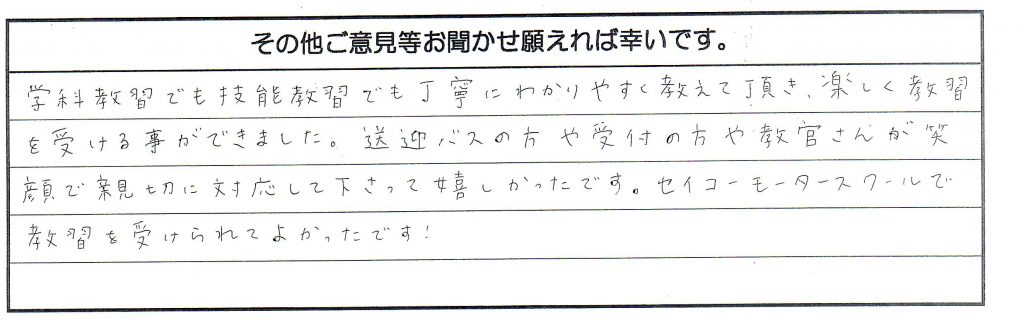 その他ご意見等お聞かせ願えれば幸いです。
学科教習でも技能教習でも丁寧にわかりやすく教えて頂き、楽しく教習
を受ける事ができました。送迎バスの方や受付の方や教官さんが笑
顔で親切に対応して下さって嬉しかったです。セイコーモータースクールで
教習を受けられてよかったです!